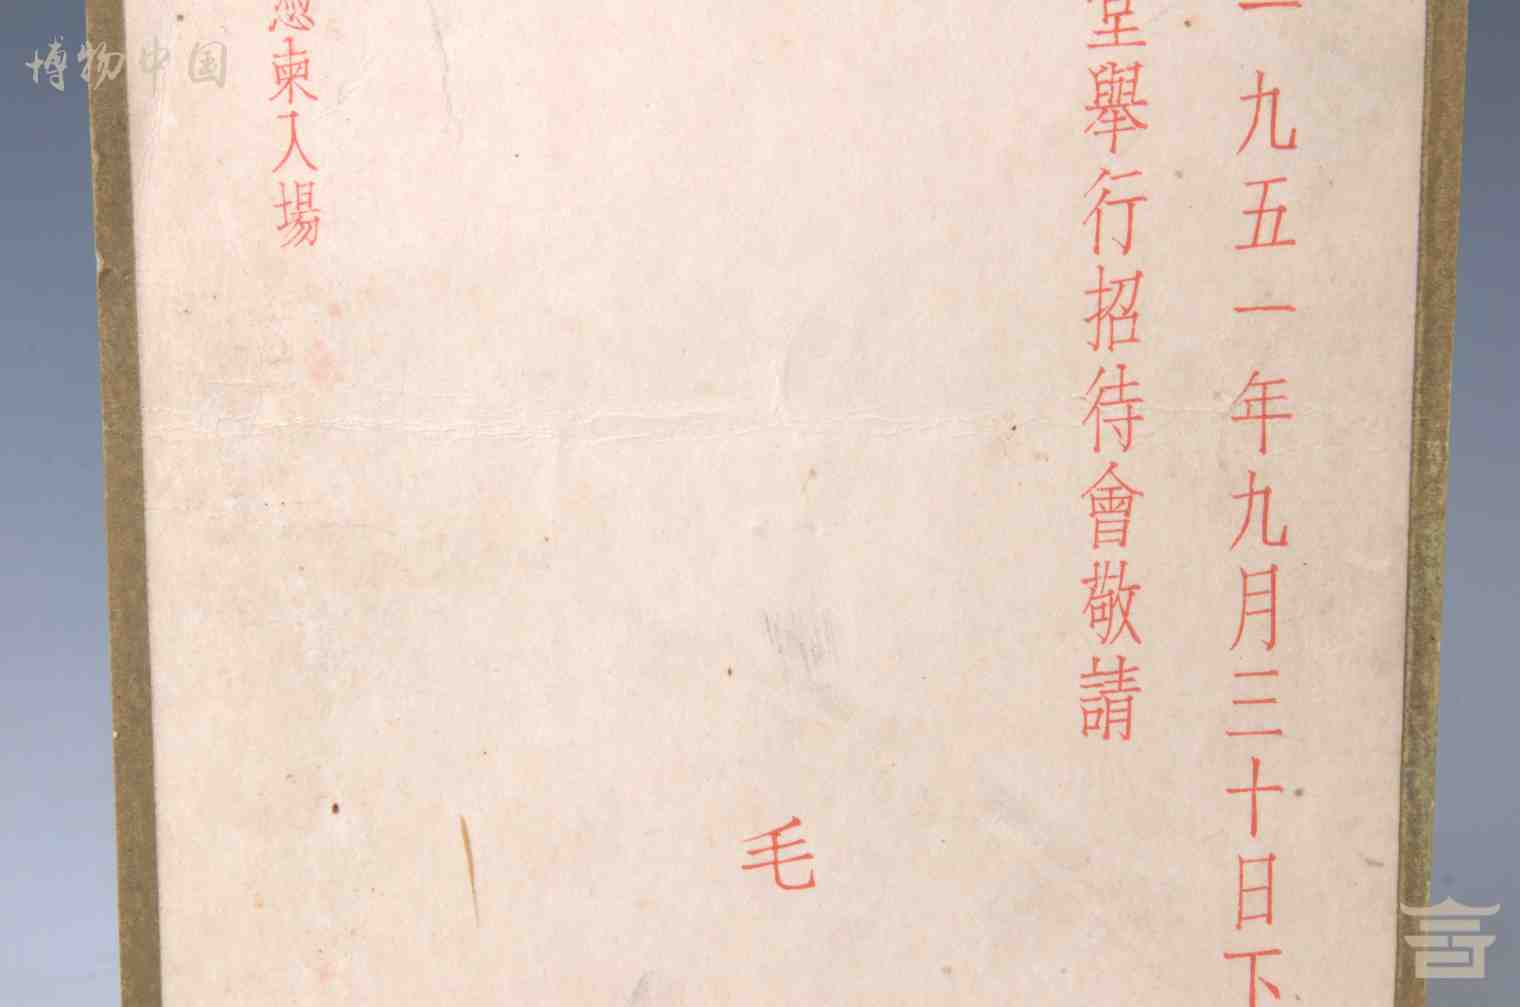 一九五一年九月三十日下
堂舉行招待會敬請
毛
憑柬入場
博物中国